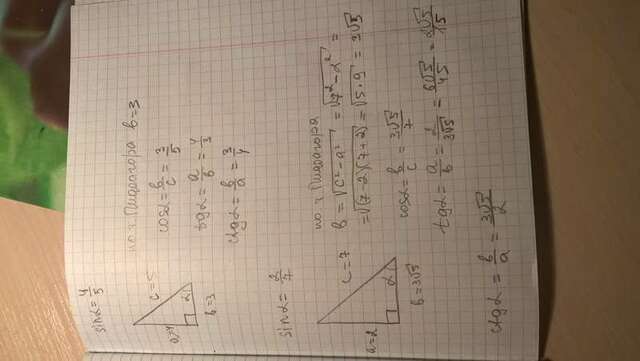 sinα = 4/5
a=4
c=5
α
b=3
по т. Пифагора b=3
cosα = b/c = 3/5
tgα = a/b = 4/3
ctgα = b/a = 3/4
sinα = 2/7
a=2
c=7
α
b=3√5
по т. Пифагора
b = √(c²-a²) = √(7²-2²) =
= √((7-2)(7+2)) = √(5·9) = 3√5
cosα = b/c = 3√5/7
tgα = a/b = 2/3√5 = 6√5/45 = 2√5/15
ctgα = b/a = 3√5/2